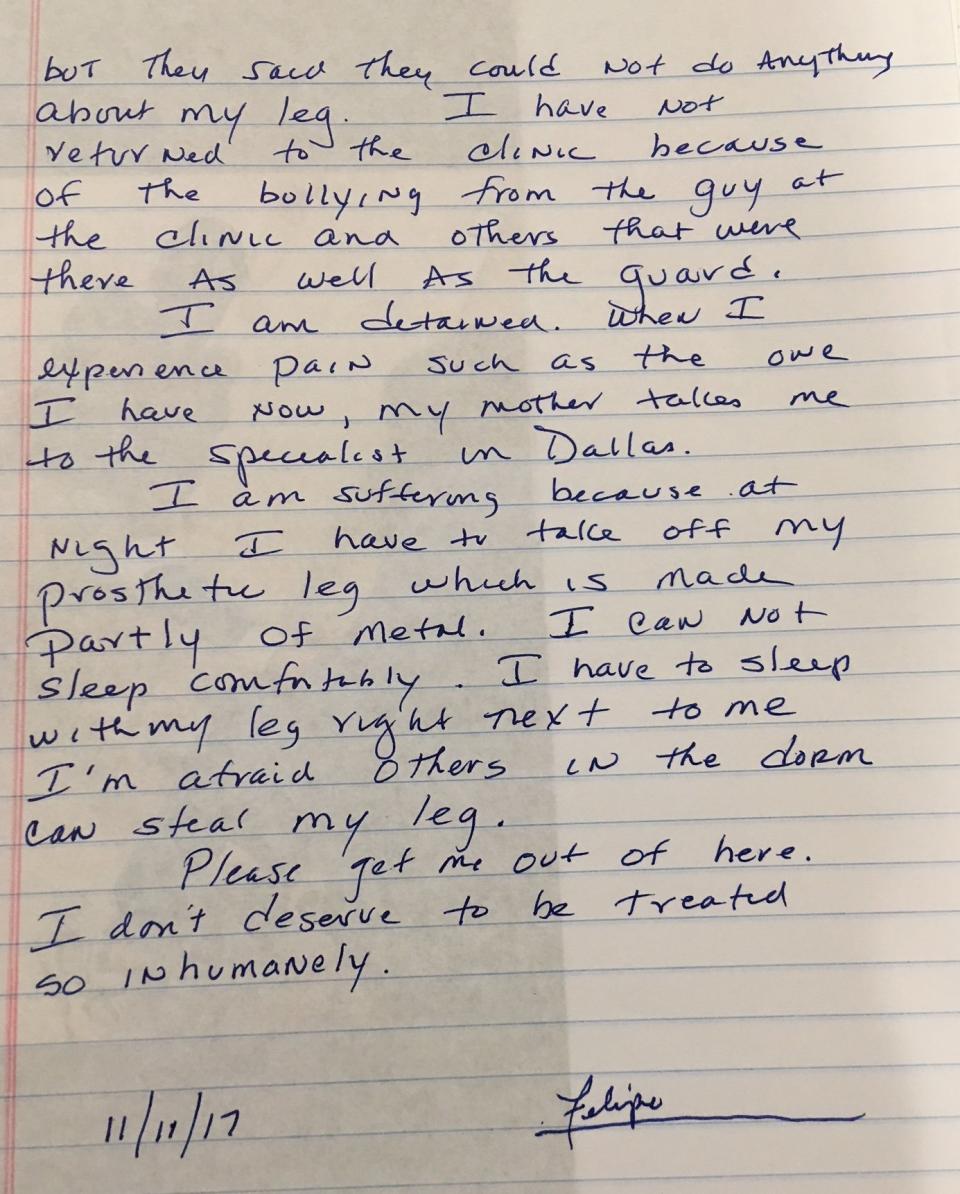 but They said they could Not do Anything
about my leg. I have Not
returned to the clinic because
of the bollying from the guy at
the clinic and others that were
there As well As the guard.
I am detained. When I
experience pain such as the one
I have Now, my mother takes me
to the specealist in Dallas.
I am suffering because at
Night I have to take off my
prosthetic leg which is made
partly of metal. I can Not
sleep comfortably. I have to sleep
with my leg right next to me
I'm afraid others in the dorm
can steal my leg.
Please get me out of here.
I don't deserve to be treated
so inhumanely.
11/11/17 Felipe